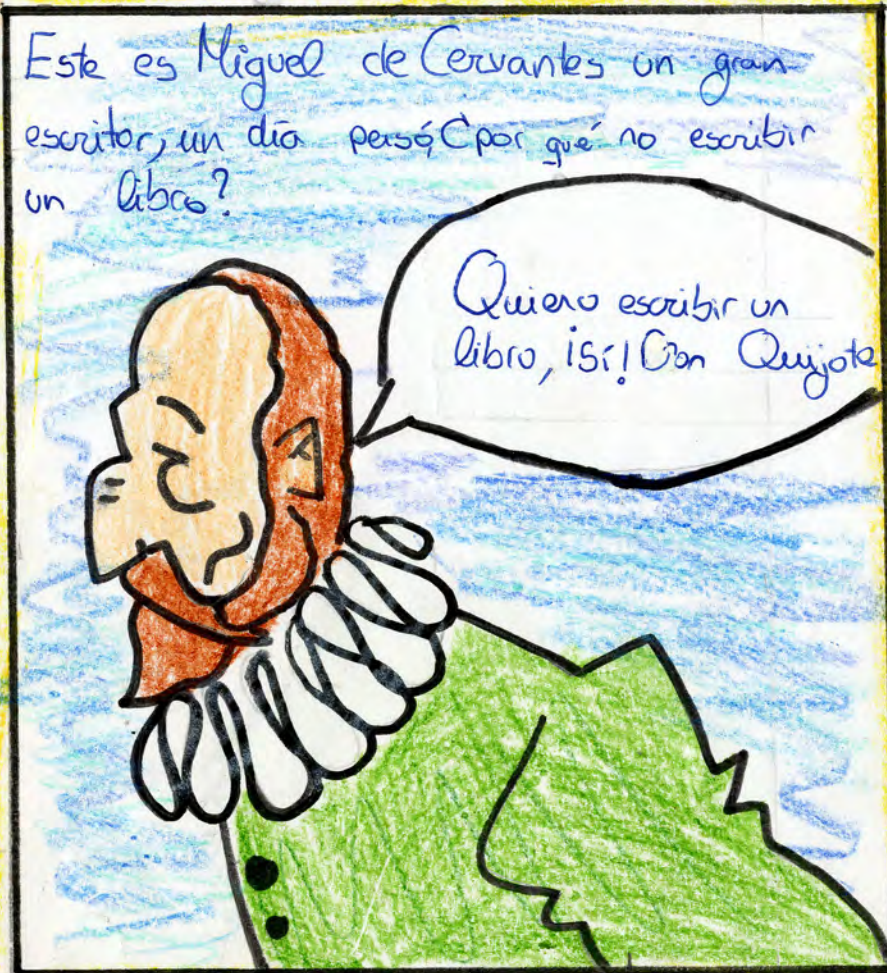 Este es Miguel de Cervantes un gran
escritor, un día pensó ¿por qué no escribir
un libro?
Quiero escribir un
libro, ¡Sí! Don Quijote